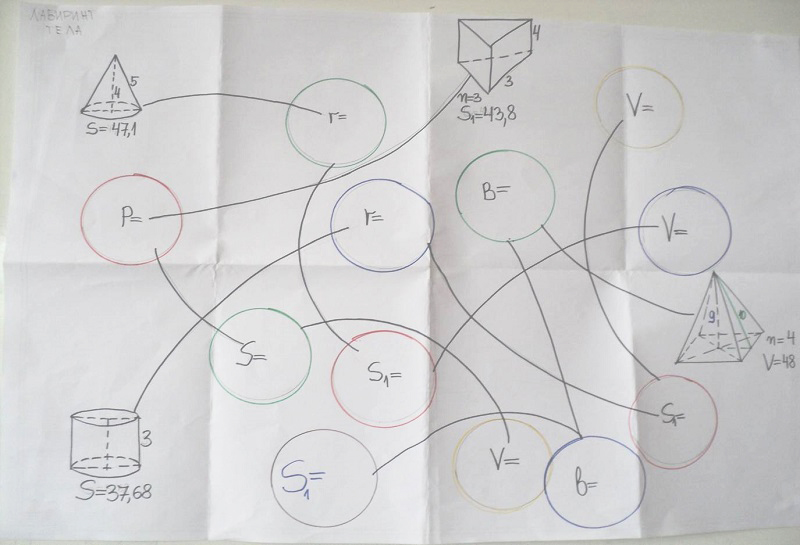 ЛАБИРИНТ
ТЕЛА
4
5
4
S=47,1
3
n=3
S₁=43,8
r=
V=
P=
r=
B=
V=
9
10
n=4
V=48
S=
S₁=
S₁=
3
S=37,68
S₁=
V=
b=